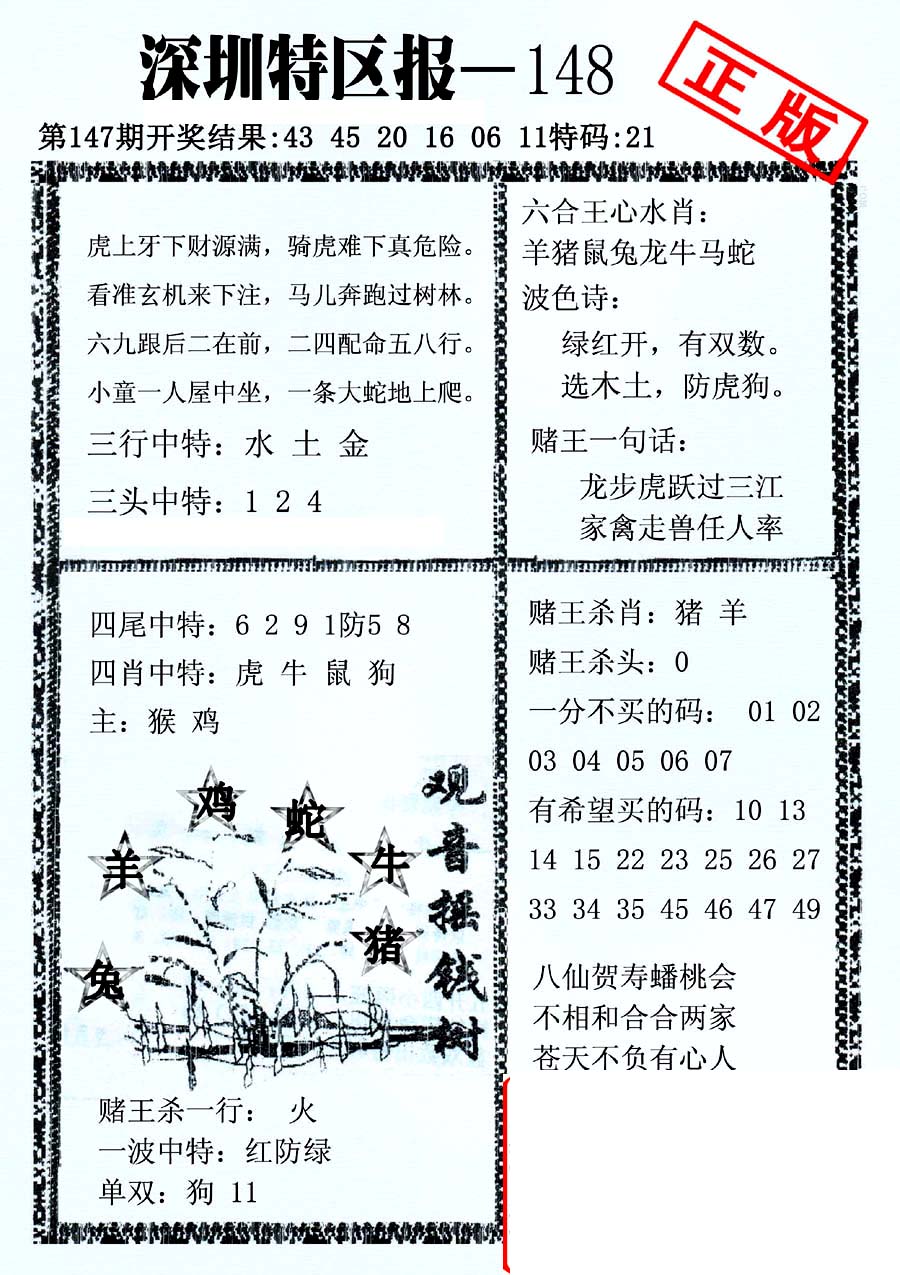 深圳特区报—148
正版
第147期开奖结果:43 45 20 16 06 11特码:21
虎上牙下财源满，骑虎难下真危险。
看准玄机来下注，马儿奔跑过树林。
六九跟后二在前，二四配命五八行。
小童一人屋中坐，一条大蛇地上爬。
三行中特：水 土 金
三头中特：1 2 4
六合王心水肖：
羊猪鼠兔龙牛马蛇
波色诗：
绿红开，有双数。
选木土，防虎狗。
赌王一句话：
龙步虎跃过三江
家禽走兽任人率
四尾中特：6 2 9 1防5 8
四肖中特：虎 牛 鼠 狗
主：猴 鸡
鸡
蛇
羊
牛
猪
兔
观音摇钱树
赌王杀一行： 火
一波中特：红防绿
单双：狗 11
赌王杀肖：猪 羊
赌王杀头：0
一分不买的码： 01 02
03 04 05 06 07
有希望买的码：10 13
14 15 22 23 25 26 27
33 34 35 45 46 47 49
八仙贺寿蟠桃会
不相和合合两家
苍天不负有心人